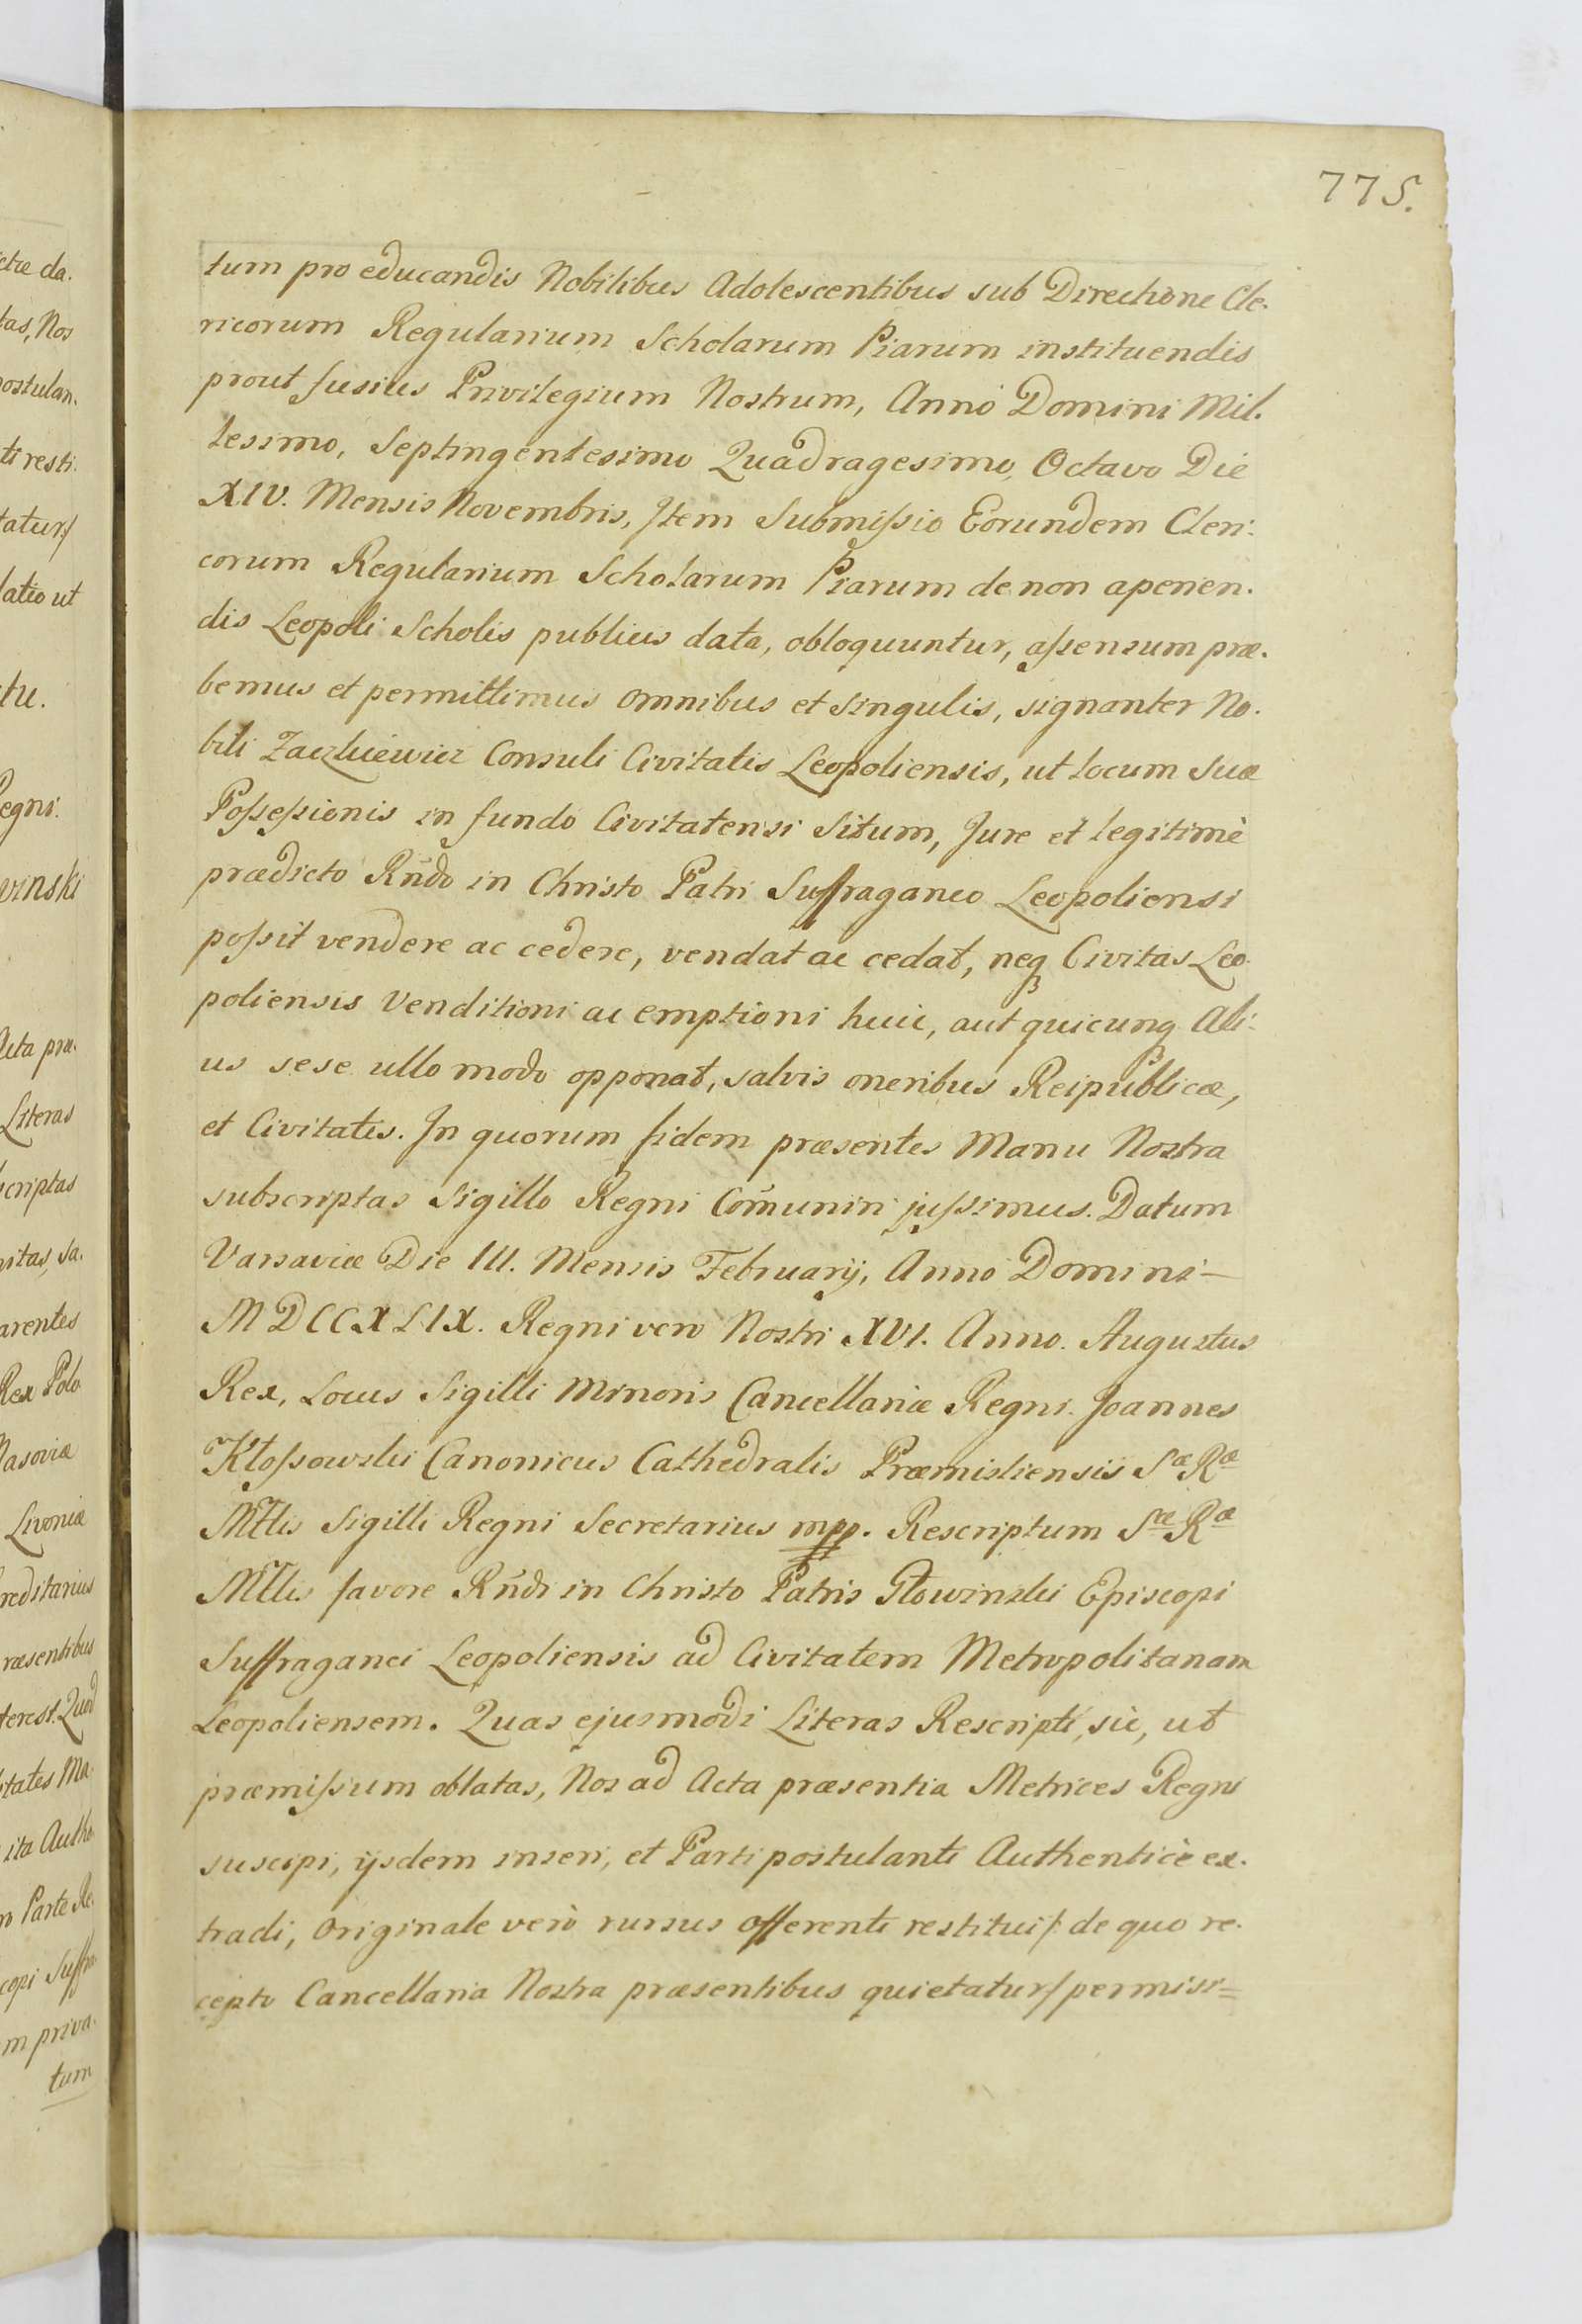 775.
tum pro educandis Nobilibus Adolescentibus sub Directione Cle-
ricorum Regularium Scholarum Piarum instituendis
prout fusius Privilegium Nostrum, Anno Domini Mil-
lesimo, Septingentesimo Quadragesimo, Octavo Die
XIV. Mensis Novembris, Item Submissio Eorundem Cleri-
corum Regularium Scholarum Piarum de non aperien-
dis Leopoli Scholis publicis data, obloquuntur, assensum præ-
bemus et permittimus omnibus et singulis, signanter No-
bili Consuli Civitatis Leopoliensis, ut locum suæ
Possessionis in fundo Civitatensi Situm, Jure et legitimè
prædicto Rñdo in Christo Patri Suffraganeo Leopoliensi
possit vendere ac cedere, vendat ac cedat, neq Civitas Leo-
poliensis Venditioni ac emptioni huic, aut quicunq Ali-
us sese ullo modo opponat, salvis oneribus Reipublicæ,
et Civitatis. In quorum fidem præsentes Manu Nostra
subscriptas Sigillo Regni Com̃uniri jussimus. Datum
Varsaviæ Die III. Mensis Februarij, Anno Domini—
MDCCXLIX. Regni vero Nostri XVI. Anno. Augustus
Rex, Locus Sigilli Minoris Cancellariæ Regni. Joannes
Kłossowski Canonicus Cathedralis Præmisliensis Sæ Ræ
Mttis Sigilli Regni Secretarius mpp. Rescriptum Sæ Ræ
Mttis favore Rñdi in Christo Patris Głowinski Episcopi
Suffraganei Leopoliensis ad Civitatem Metropolitanam
Leopoliensem. Quas ejusmodi Literas Rescripti, sic, ut
præmissum oblatas, Nos ad Acta præsentia Metrices Regni
suscipi, ijsdem inseri, et Parti postulanti Authenticè ex-
tradi, Originale verò rursus offerenti restitui /: de quo re-
cepto Cancellaria Nostra præsentibus quietatur/ permisi=